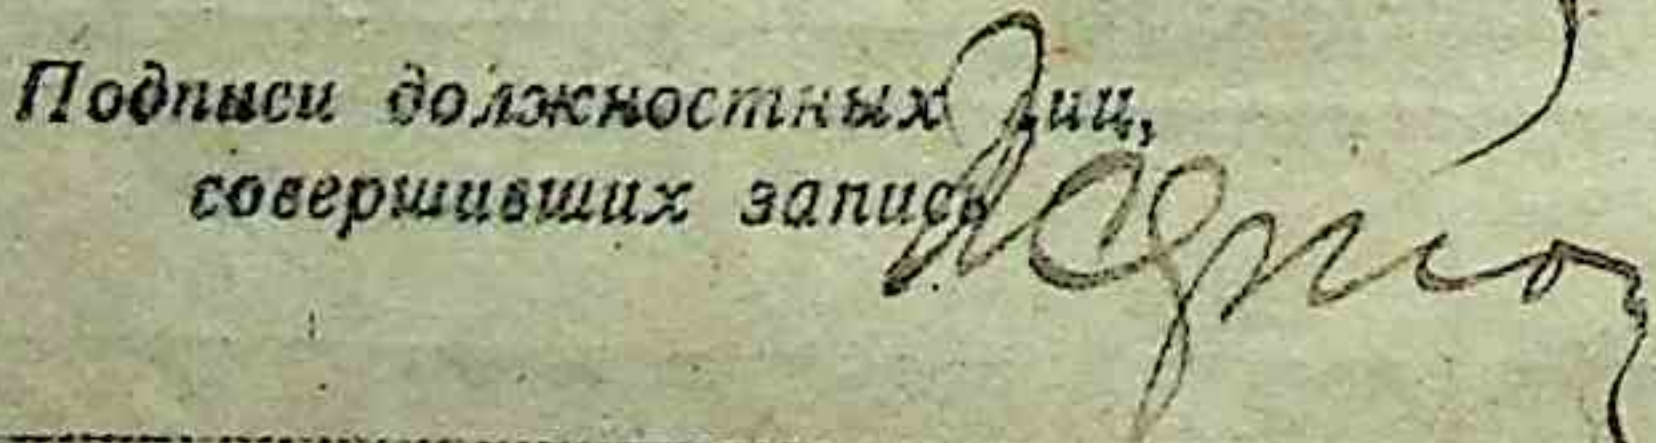 Подписи должностных лиц,
совершивших запись